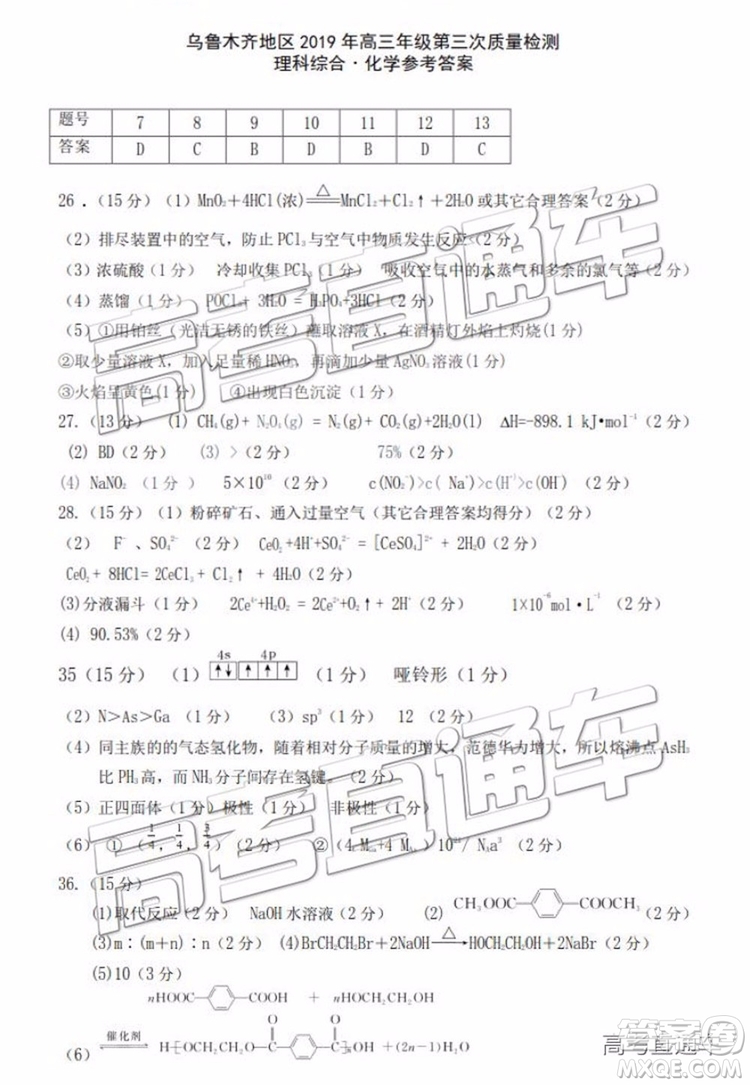 乌鲁木齐地区 2019 年高三年级第三次质量检测
理科综合·化学参考答案
题号 7 8 9 10 11 12 13
答案 D C B D B D C
26 .（15 分）（1）MnO₂＋4HCl(浓) △ MnCl₂＋Cl₂↑＋2H₂O 或其它合理答案（2 分）
（2）排尽装置中的空气，防止 PCl₃与空气中物质发生反应（2 分）
（3）浓硫酸（1 分） 冷却收集PCl₃（1 分） 吸收空气中的水蒸气和多余的氯气等（2 分）
（4）蒸馏（1 分） POCl₃+ 3H₂O = H₃PO₄+3HCl（2 分）
（5）①用铂丝（光洁无锈的铁丝）蘸取溶液 X，在酒精灯外焰上灼烧(1 分)
②取少量溶液 X，加入足量稀 HNO₃，再滴加少量 AgNO₃溶液(1 分)
③火焰呈黄色(1 分) ④出现白色沉淀（1 分）
27.（13 分） (1) CH₄(g)+ N₂O₄(g) = N₂(g)+ CO₂(g)+2H₂O(l) ΔH=-898.1 kJ•mol⁻¹（2 分）
(2) BD（2 分） (3) >（2 分） 75%（2 分）
(4) NaNO₂ （1 分） 5×10¹⁰（2 分） c(NO₂⁻)>c( Na⁺)>c(H⁺)>c(OH⁻)（2 分）
28.（15 分）（1）粉碎矿石、通入过量空气（其它合理答案均得分）（2 分）
（2） F⁻ 、SO₄²⁻（2 分） CeO₂+4H⁺+ SO₄²⁻ = [CeSO₄]²⁺ + 2H₂O（2 分）
CeO₂+ 8HCl = 2CeCl₃+ Cl₂↑ + 4H₂O（2 分）
(3)分液漏斗（1 分） 2Ce⁴⁺+H₂O₂ = 2Ce³⁺+ O₂↑ + 2H⁺（2 分） 1×10⁻⁶mol·L⁻¹（2 分）
(4) 90.53%（2 分）
4s 4p
35（15 分）（1） ↑↓ ↑ ↑ ↑ （1 分） 哑铃形（1 分）
（2）N＞As＞Ga （1 分） （3）sp³（1 分） 12 （2 分）
（4）同主族的的气态氢化物，随着相对分子质量的增大，范德华力增大，所以熔沸点 AsH₃
比 PH₃高，而 NH₃分子间存在氢键。（2 分）
（5）正四面体（1 分）极性（1 分） 非极性（1 分）
（6）①（1/4，1/4，3/4）（2 分）
36.（15 分）
(1)取代反应（2 分） NaOH 水溶液（2 分） (2) CH₃OOC COOCH₃（2 分）
(3)m∶(m+n)∶n（2 分） (4)BrCH₂CH₂Br＋2NaOH △ HOCH₂CH₂OH＋2NaBr（2 分）
(5)10（3 分）
nHOOC COOH + nHOCH₂CH₂OH
O O
（6） 催化剂 H[OCH₂CH₂O C C]ₙOH +(2n−1)H₂O（2 分）
高考直通车
高考直通车
高考直通车
答案圈